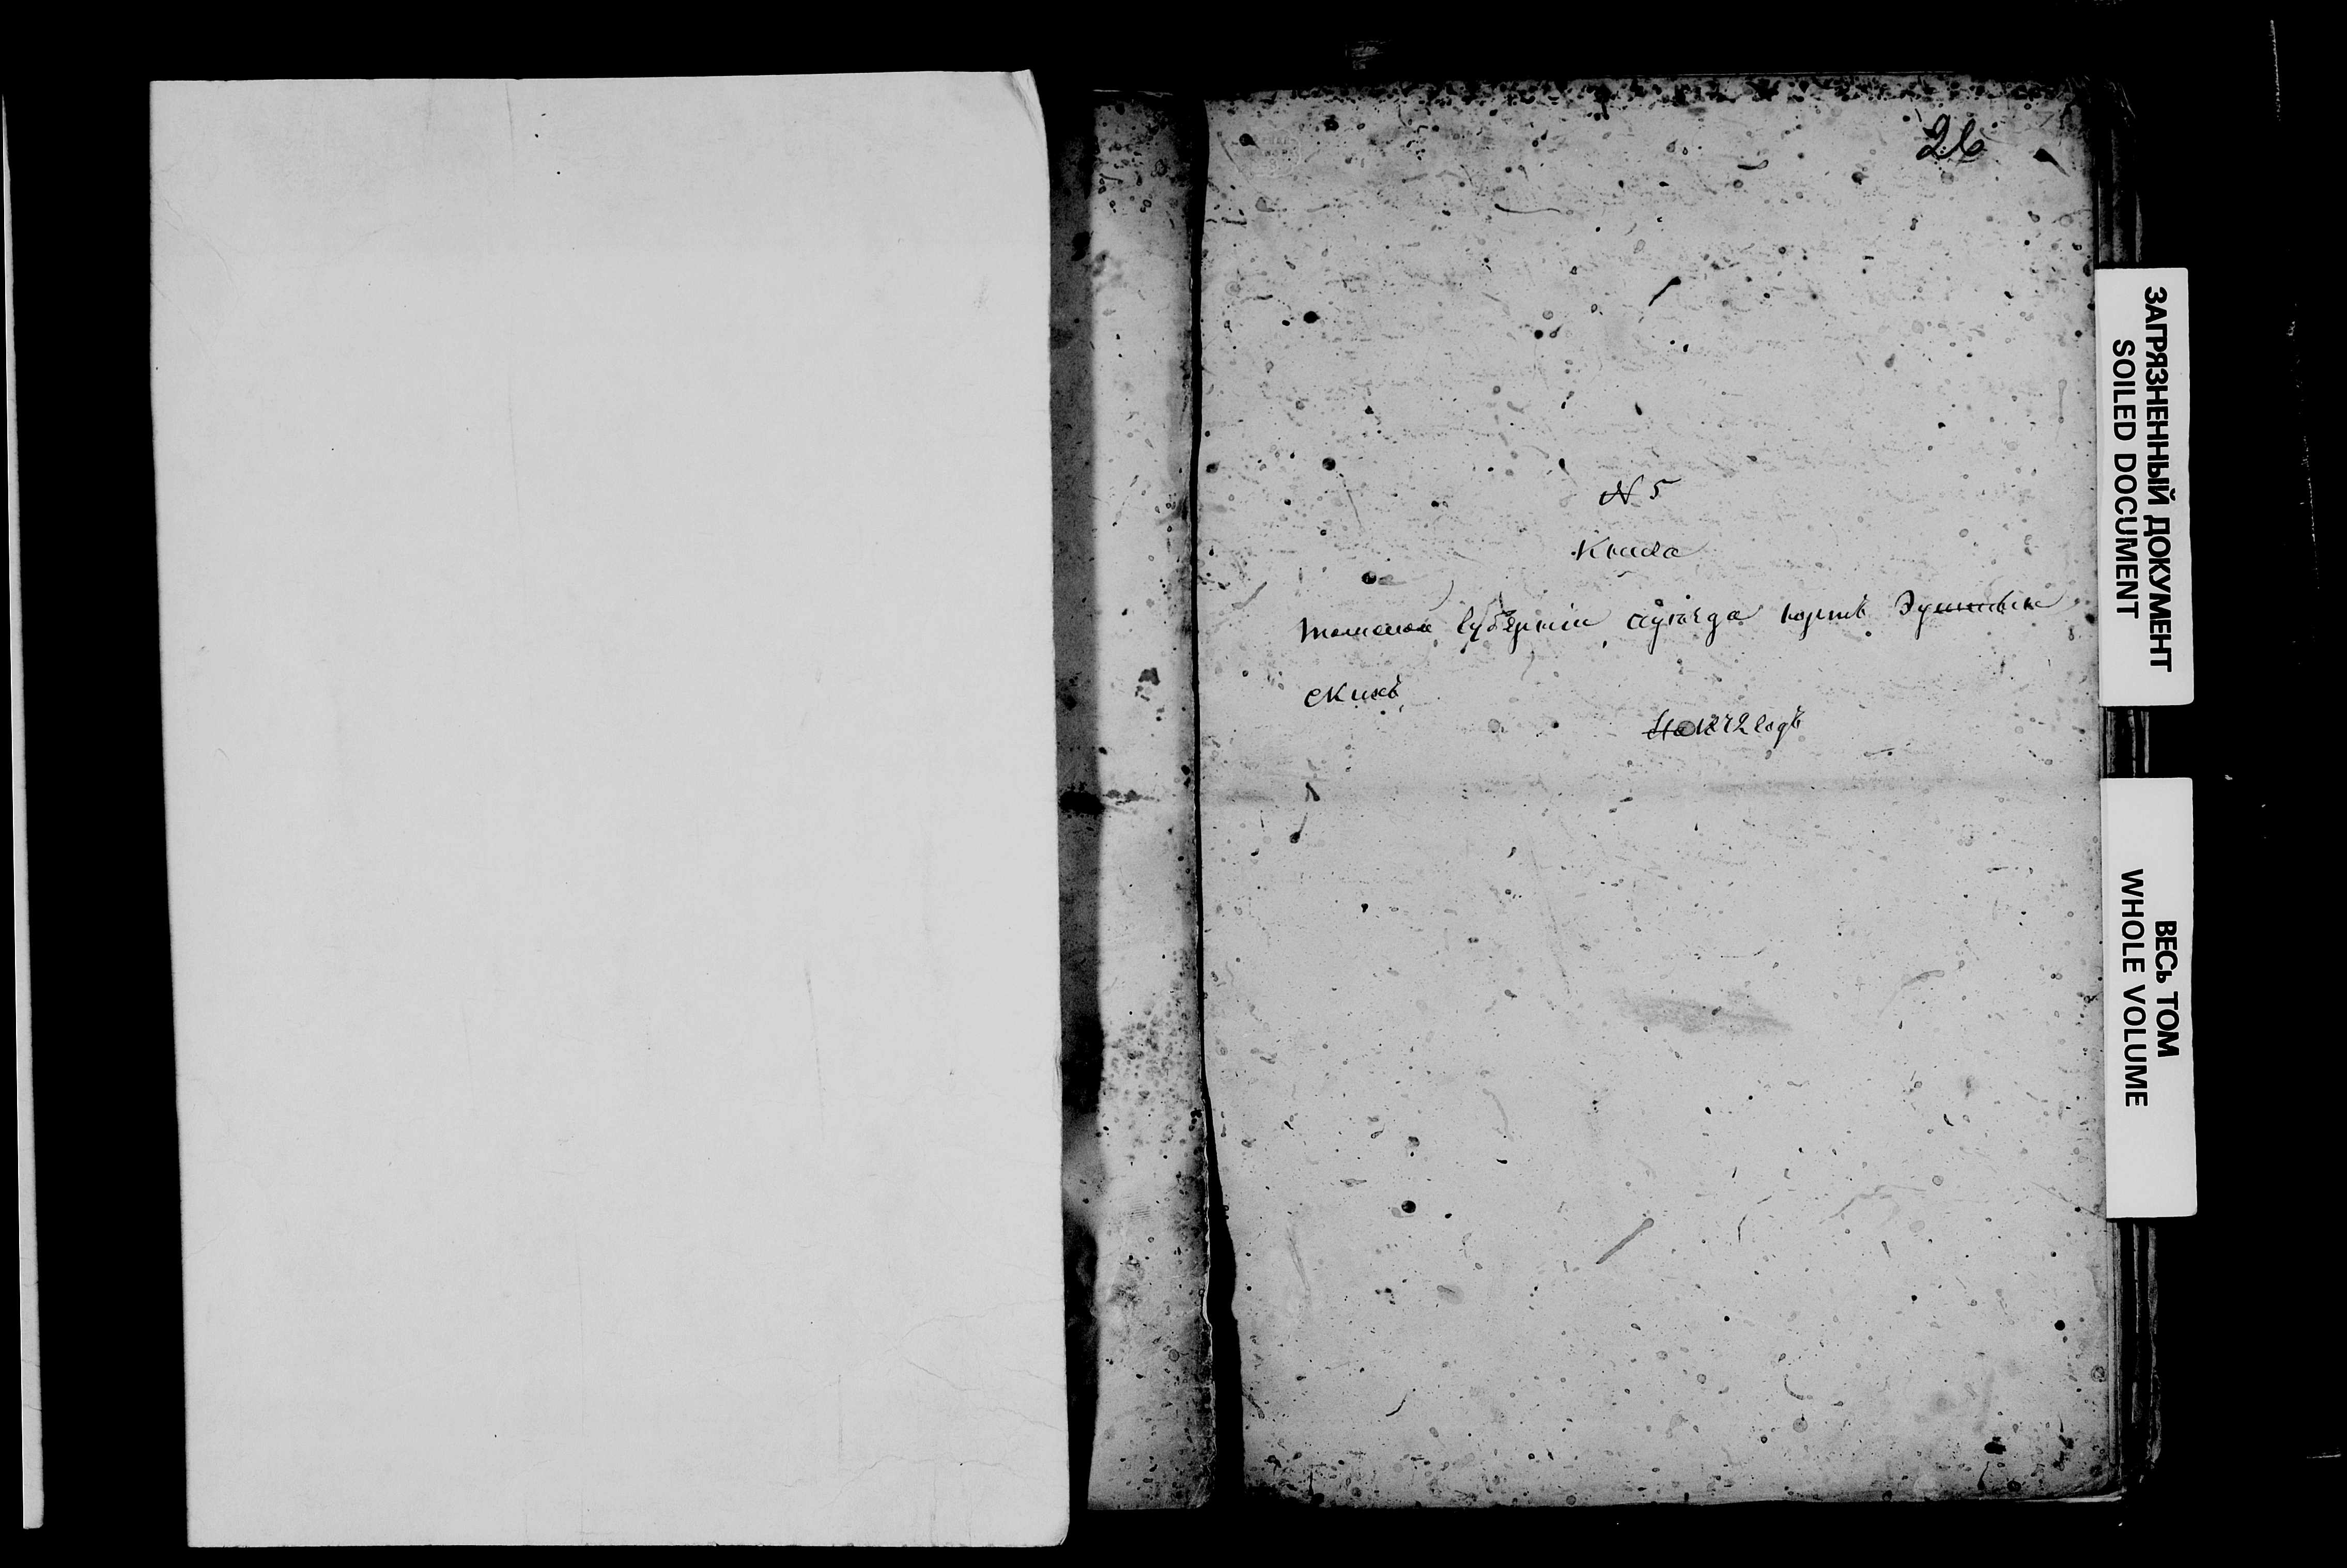 26
№ 5
Книга
Томской губернiи, округа юртъ Эуштин
скихъ,
На 1872 годъ
ЗАГРЯЗНЕННЫЙ ДОКУМЕНТ
SOILED DOCUMENT
ВЕСЬ ТОМ
WHOLE VOLUME